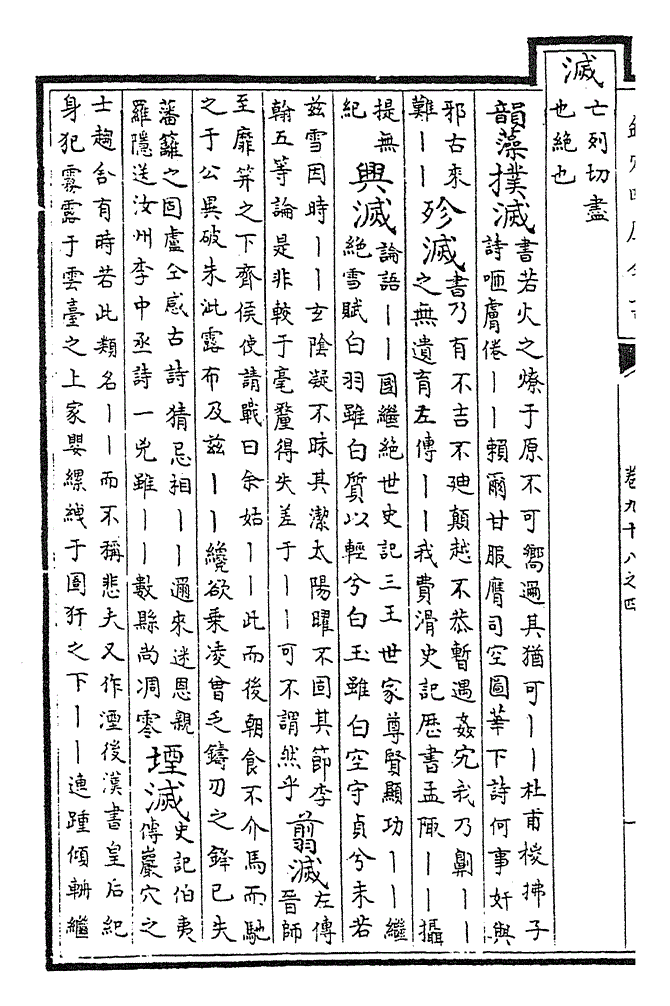 滅亡列切盡
也絶也
韻藻撲滅書若火之燎于原不可嚮邇其猶可丨丨杜甫椶拂子
詩咂膚倦丨丨賴爾甘服膺司空圖華下詩何事奸與
邪古來殄滅書乃有不吉不廸顛越不恭暫遇姦宄我乃劓丨丨
難丨丨之無遺育左傳丨丨我費滑史記歴書孟陬丨丨攝
提無興滅論語丨丨國繼絶世史記三王世家尊賢顯功丨丨繼
紀絶雪賦白羽雖白質以輕兮白玉雖白空守貞兮未若
兹雪因時丨丨玄陰凝不昧其潔太陽曜不固其節李翦滅左傳
翰五等論是非較于毫釐得失差于丨丨可不謂然乎晉師
至靡笄之下齊侯使請戰曰余姑丨丨此而後朝食不介馬而馳
之于公異破朱泚露布及兹丨丨纔欲乗凌曾乏鑄刃之鋒已失
藩籬之固盧仝感古詩猜忌相丨丨邇來迷恩親堙滅史記伯夷
羅隱送汝州李中丞詩一兇雖丨丨數縣尚凋零傳巖穴之
士趨舍有時若此類名丨丨而不稱悲夫又作湮後漢書皇后紀
身犯霧露于雲臺之上家嬰縲絏于圄犴之下丨丨連踵傾輈繼
卷九十八之四